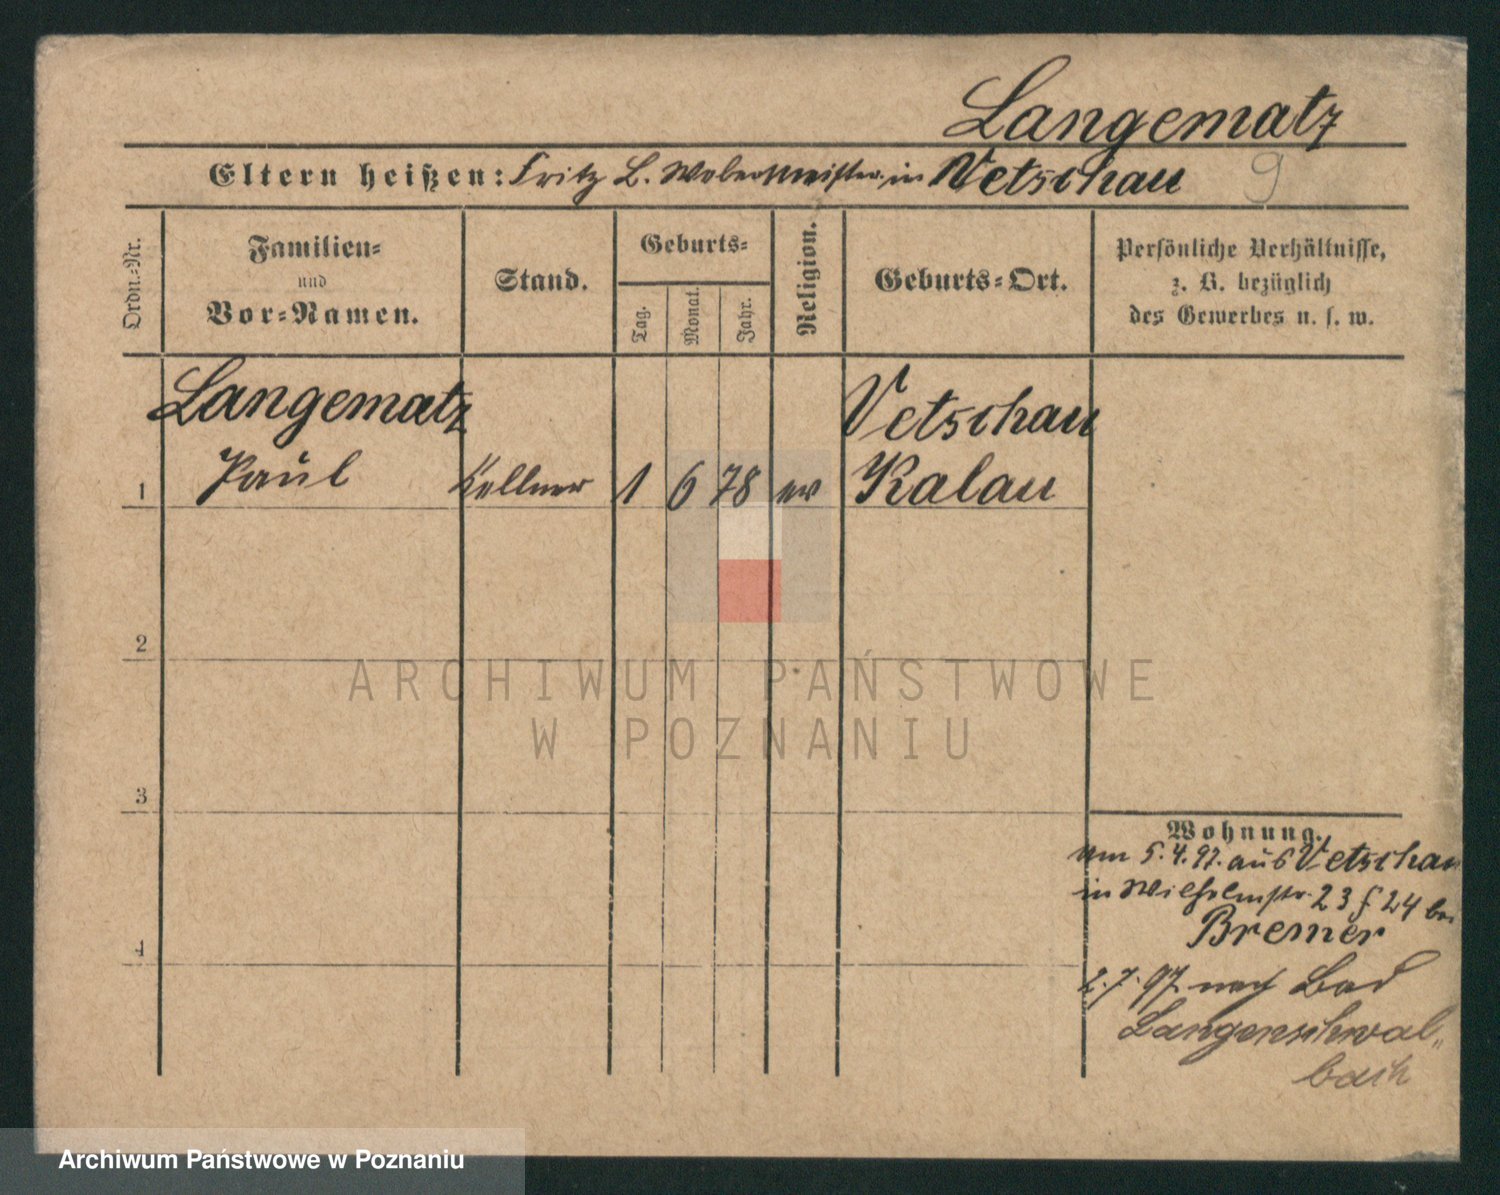 Langematz
Eltern heißen: Fritz L. Webermeister in Vetschau 9
Ordn.-Nr.
Familien-
und
Vor-Namen.
Stand.
Geburts-
Tag.
Monat.
Jahr.
Religion.
Geburts-Ort.
Persönliche Verhältnisse,
z. B. bezüglich
des Gewerbes u. s. w.
Langematz Vetschau
1 Paul Kellner 1 6 78 ev Kalau
2
ARCHIWUM PAŃSTWOWE
W POZNANIU
3
Wohnung.
am 5.4.97. aus Vetschau
in Wilhelmstr. 23 f 24 bei
Bremer
4
2.7.97 nach Bad
Langenschwal„
bach
Archiwum Państwowe w Poznaniu